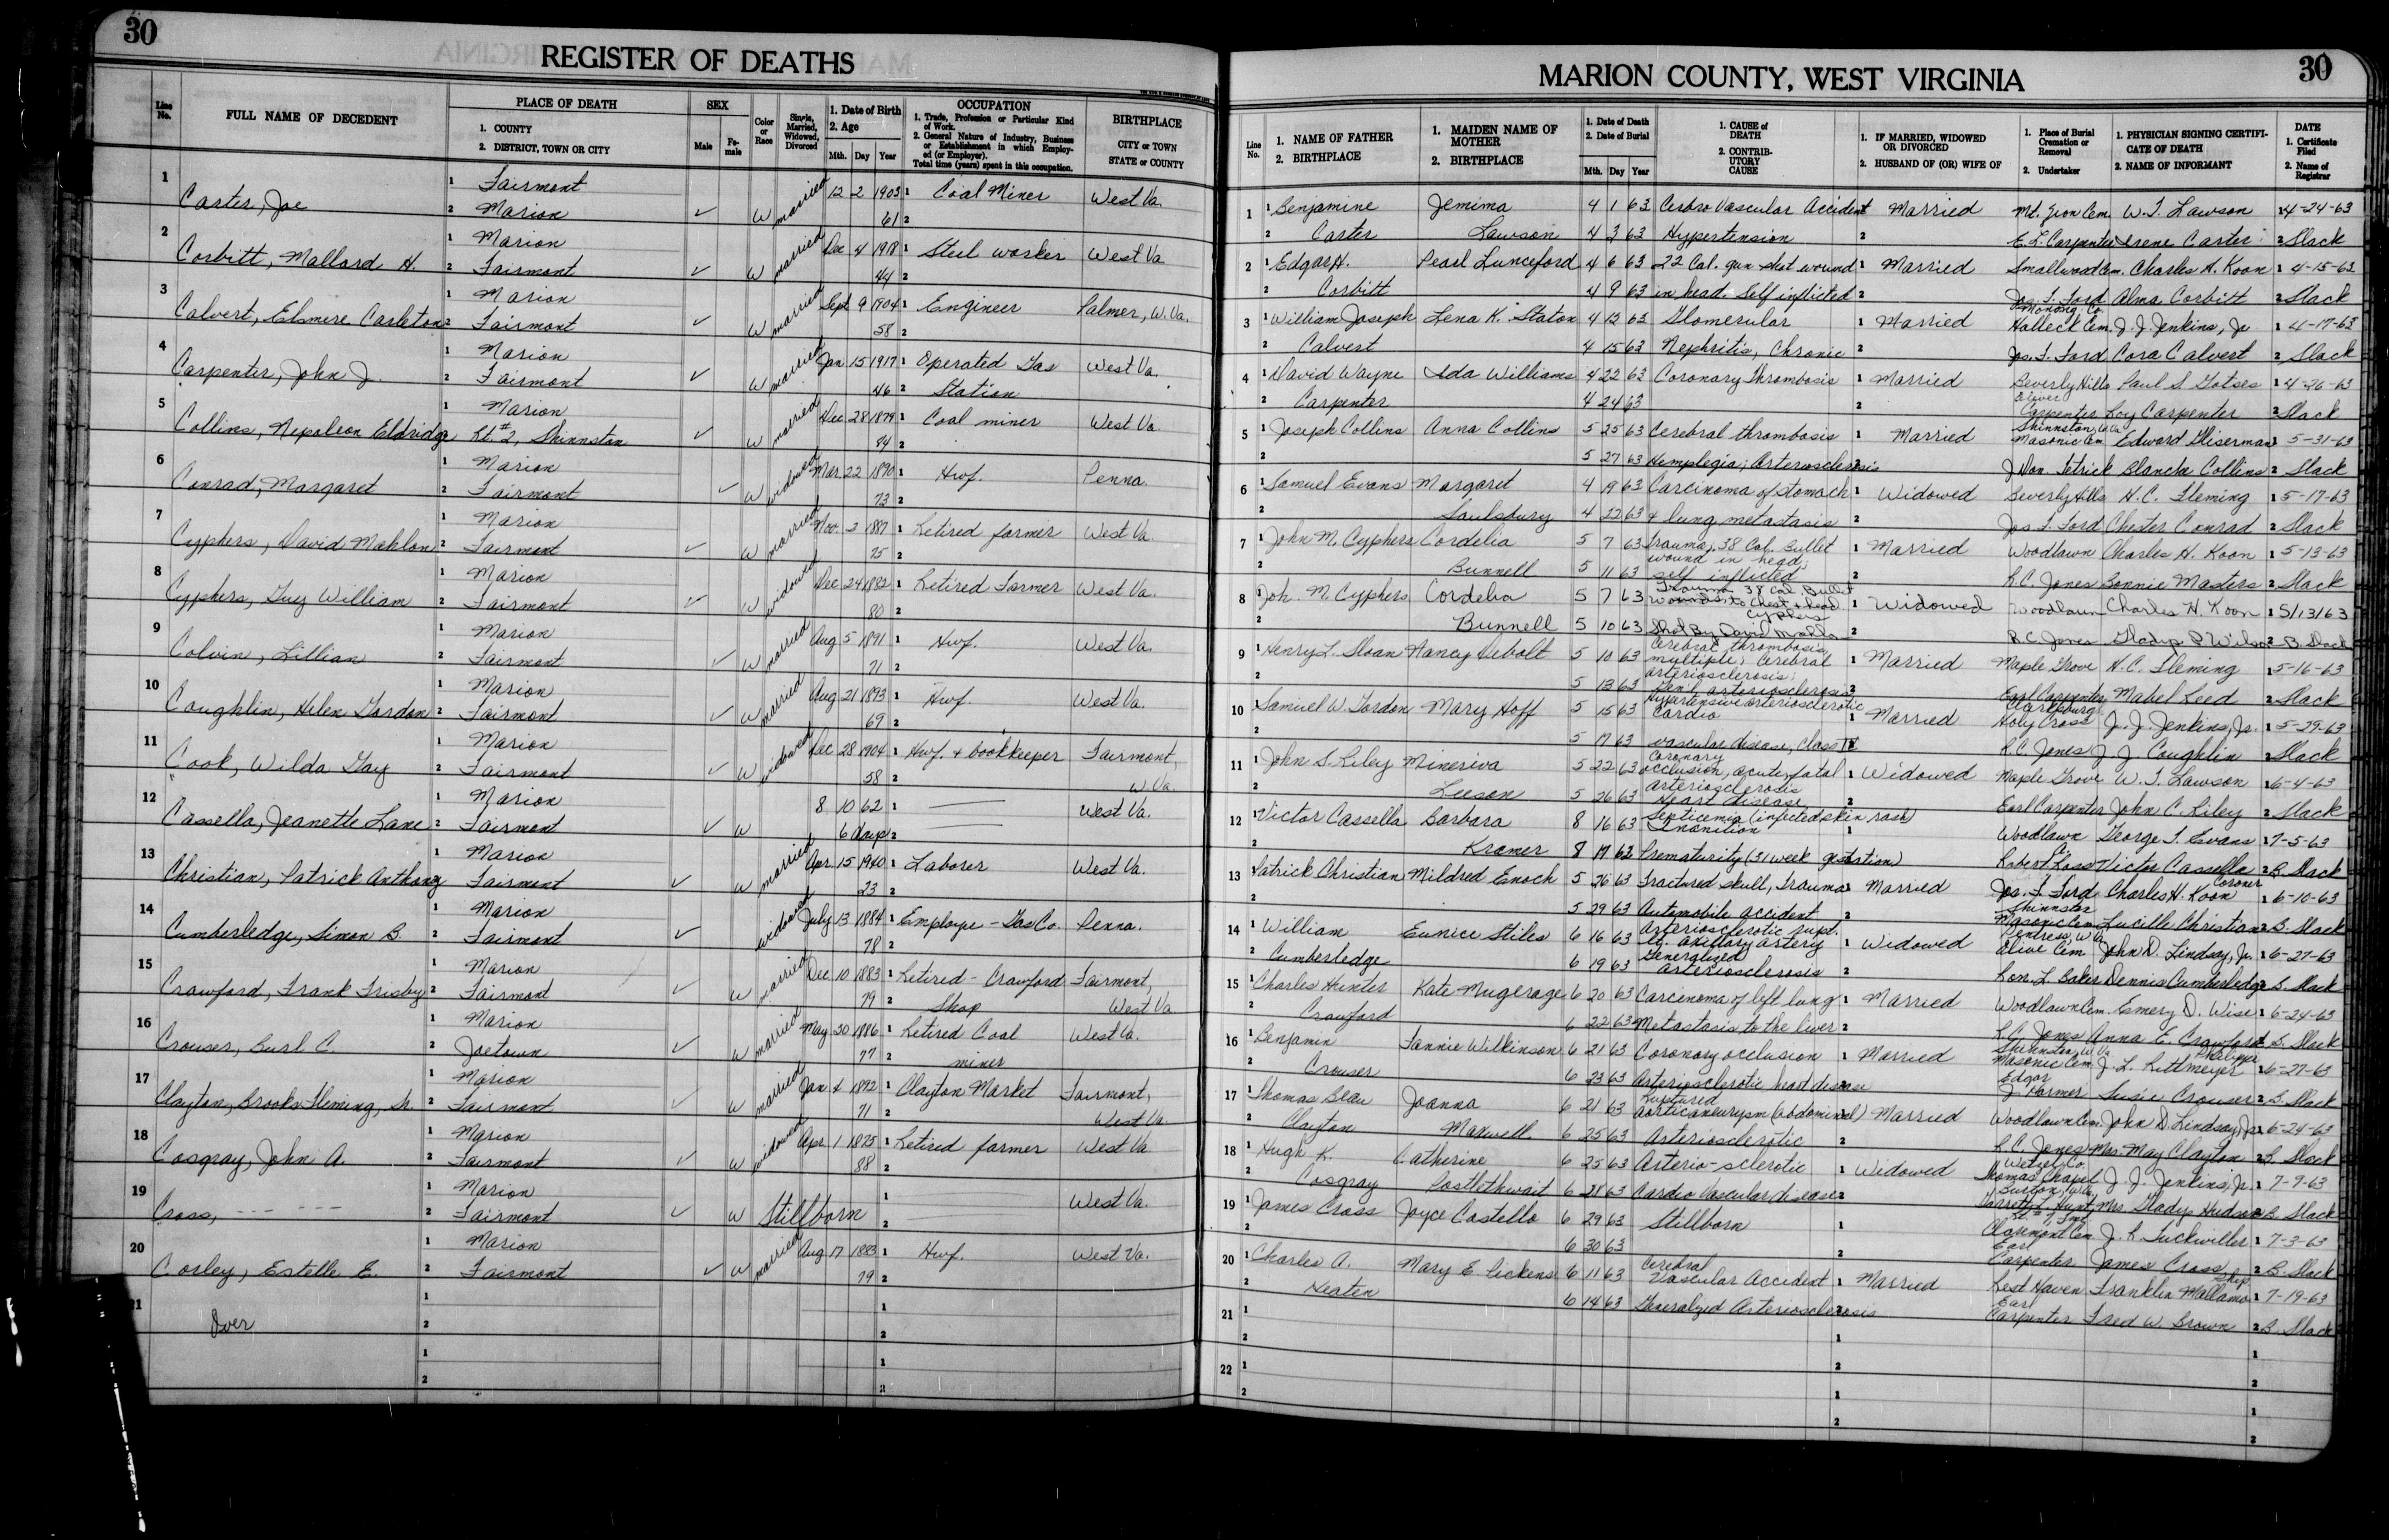 30
REGISTER OF DEATHS
Line No.
FULL NAME OF DECEDENT
PLACE OF DEATH
1. COUNTY
2. DISTRICT, TOWN OR CITY
SEX
Male
Fe-male
Color or Race
Single, Married, Widowed, Divorced
1. Date of Birth
2. Age
Mth. Day Year
OCCUPATION
1. Trade, Profession or Particular Kind of Work.
2. General Nature of Industry, Business or Establishment in which Employed (or Employer).
Total time (years) spent in this occupation.
BIRTHPLACE
CITY or TOWN
STATE or COUNTY
1 Carter, Joe 1 Fairmont ✓ W married 12 2 1903 1 Coal Miner West Va.
2 Marion 61 2
2 Corbitt, Mallard H. 1 Marion ✓ W married Dec 4 1918 1 Steel worker West Va
2 Fairmont 44 2
3 Calvert, Elsmere Carleton 1 Marion ✓ W married Sept 9 1904 1 Engineer Palmer, W. Va.
2 Fairmont 58 2
4 Carpenter, John J. 1 Marion ✓ W married Jan 15 1917 1 Operated Gas West Va.
2 Fairmont 46 2 Station
5 Collins, Nepoleon Eldridge 1 Marion ✓ W married Dec 28 1879 1 Coal miner West Va.
2 Rt. #2, Shinnston 84 2
6 Conrad, Margaret 1 Marion ✓ W widowed Mar. 22 1890 1 Hwf. Penna.
2 Fairmont 73 2
7 Cyphers, David Mahlon 1 Marion ✓ W married Nov. 2 1887 1 Retired farmer West Va.
2 Fairmont 75 2
8 Cyphers, Guy William 1 Marion ✓ W widowed Dec 24 1882 1 Retired Farmer West Va.
2 Fairmont 80 2
9 Colvin, Lillian 1 Marion ✓ W married Aug 5 1891 1 Hwf. West Va.
2 Fairmont 71 2
10 Coughlin, Helen Gordon 1 Marion ✓ W married Aug 21 1893 1 Hwf. West Va.
2 Fairmont 69 2
11 Cook, Wilda Gay 1 Marion ✓ W widowed Dec 28 1904 1 Hwf. + bookkeeper Fairmont,
2 Fairmont 58 2 W. Va.
12 Cassella, Jeanette Lane 1 Marion ✓ W 8 10 62 1 — West Va.
2 Fairmont 6 days 2 —
13 Christian, Patrick Anthony 1 Marion ✓ W married Apr. 15 1940 1 Laborer West Va.
2 Fairmont 23 2
14 Cumberledge, Simon B. 1 Marion ✓ widowed July 13 1884 1 Employe - Gas Co. Penna.
2 Fairmont 78 2
15 Crawford, Frank Frisby 1 Marion ✓ W married Dec. 10 1883 1 Retired - Crawford Fairmont,
2 Fairmont 79 2 Shop West Va
16 Crouser, Burl C. 1 Marion ✓ W married May 20 1886 1 Retired Coal West Va.
2 Joetown 77 2 miner
17 Clayton, Brooks Fleming, Sr. 1 Marion ✓ W married Jan. 4 1892 1 Clayton Market Fairmont,
2 Fairmont 71 2 West Va.
18 Cosgray, John A. 1 Marion ✓ W widowed Apr 1 1875 1 Retired farmer West Va
2 Fairmont 88 2
19 Cross, --- --- 1 Marion ✓ W Stillborn 1 West Va.
2 Fairmont 2
20 Corley, Estelle E. 1 Marion ✓ W married Aug 17 1883 1 Hwf. West Va.
2 Fairmont 79 2
21 Over 1 1
2 2
1 1
2 2
30
MARION COUNTY, WEST VIRGINIA
Line No.
1. NAME OF FATHER
2. BIRTHPLACE
1. MAIDEN NAME OF MOTHER
2. BIRTHPLACE
1. Date of Death
2. Date of Burial
Mth. Day Year
1. CAUSE of DEATH
2. CONTRIBUTORY CAUSE
1. IF MARRIED, WIDOWED OR DIVORCED
2. HUSBAND OF (OR) WIFE OF
1. Place of Burial Cremation or Removal
2. Undertaker
1. PHYSICIAN SIGNING CERTIFICATE OF DEATH
2. NAME OF INFORMANT
DATE
1. Certificate Filed
2. Name of Registrar
1 1 Benjamine Jemima 4 1 63 Cerbro Vascular Accident Married Mt. Zion Cem. W. T. Lawson 1 4-24-63
2 Carter Lawson 4 3 63 Hypertension 2 E. L. Carpenter Irene Carter 2 Slack
2 1 Edgar H. Pearl Lunceford 4 6 63 22 Cal. gun shot wound 1 Married Smallwood Cem. Charles H. Koon 1 4-15-63
2 Corbitt 4 9 63 in head. Self inflicted 2 Jos. F. Ford Alma Corbitt 2 Slack
3 1 William Joseph Lena K. Staton 4 12 63 Glomerular 1 Married Monong. Co. Halleck Cem. J. J. Jenkins, Jr 1 4-17-63
2 Calvert 4 15 63 Nephritis, Chronic 2 Jos. F. Ford Cora Calvert 2 Slack
4 1 David Wayne Ada Williams 4 22 63 Coronary Thrombosis 1 Married Beverly Hills Paul S. Gotses 1 4-26-63
2 Carpenter 4 24 63 2 Oliver Carpenter Loy Carpenter 2 Slack
5 1 Joseph Collins Anna Collins 5 25 63 Cerebral thrombosis 1 Married Shinnston, W. Va. Masonic Cem. Edward Gliserman 1 5-31-63
2 5 27 63 Hemplegia; Arteriosclerosis J Don Jetrick Blanche Collins 2 Slack
6 1 Samuel Evans Margaret 4 19 63 Carcinoma of stomach 1 Widowed Beverly Hills H. C. Fleming 1 5-17-63
2 Saulsbury 4 22 63 + lung metastasis 2 Jos F. Ford Chester Conrad 2 Slack
7 1 John M. Cyphers Cordelia 5 7 63 Trauma, 38 Cal. Bullet wound in head, 1 Married Woodlawn Charles H. Koon 1 5-13-63
2 Bunnell 5 11 63 self inflicted 2 R. C. Jones Bonnie Masters 2 Slack
8 1 Joh. M. Cyphers Cordelia 5 7 63 Trauma 38 Cal. Bullet wounds to chest + head 1 Widowed Woodlawn Charles H. Koon 1 5/13/63
2 Bunnell 5 10 63 Shot By David Mahlon Cyphers 2 R. C. Jones Gladys P Wilson 2 B. Slack
9 1 Henry L. Sloan Nancy Debolt 5 10 63 Cerebral thrombosis, multiple; Cerebral 1 Married Maple Grove H. C. Fleming 1 5-16-63
2 5 13 63 arteriosclerosis; Gen'l arteriosclerosis 2 Earl Carpenter Mabel Leed 2 Slack
10 1 Samuel W. Gordon Mary Hoff 5 15 63 Hypertensive arteriosclerotic Cardio 1 Married Clarksburg Holy Cross J. J. Jenkins, Jr. 1 5-29-63
2 5 17 63 vascular disease, Class IV R. C. Jones J. J. Coughlin 2 Slack
11 1 John S. Riley Mineriva 5 22 63 Coronary occlusion, acute, fatal 1 Widowed Maple Grove W. T. Lawson 1 6-4-63
2 Leeson 5 26 63 arteriosclerosis Heart disease 2 Earl Carpenter John C. Riley 2 Slack
12 1 Victor Cassella Barbara 8 16 63 Septicemia (infected skin rash) Inanition 1 Woodlawn George T. Evans 1 7-5-63
2 Kramer 8 17 62 Prematurity (31 week gestation) Robert Ross Victor Cassella 2 B. Slack
13 1 Patrick Christian Mildred Enoch 5 26 63 Fractured skull, Trauma 1 Married Jos. F. Ford Charles H. Koon Coroner 1 6-10-63
2 5 29 63 Automobile accident 2 Shinnston Masonic Cem Lucille Christian 2 B. Slack
14 1 William Eunice Stiles 6 16 63 Arteriosclerotic rupt. lt. axillary artery 1 Widowed Pentress, W. Va. Olive Cem John D. Lindsay, Jr. 1 6-27-63
2 Cumberledge 6 19 63 Generalized Arteriosclerosis 2 Ron. L. Baker Dennis Cumberledge 2 B. Slack
15 1 Charles Hunter Kate Mugerage 6 20 63 Carcinoma of left lung 1 Married Woodlawn Cem. Emery D. Wise 1 6-24-63
2 Crawford 6 22 63 Metastasis to the liver 2 R. C. Jones Anna E. Crawford 2 B. Slack
16 1 Benjamin Fannie Wilkinson 6 21 63 Coronary occlusion 1 Married Shinnston, W. Va. Masonic Cem. J. L. Rittmeyer 1 6-27-63
2 Crouser 6 23 63 Arteriosclerotic heart disease Edgar J Harmer Susie Crouser 2 B. Slack
17 1 Thomas Beau Joanna 6 21 63 Ruptured aortic aneurysm (abdominal) Married Woodlawn Cem. John D. Lindsay, Jr. 1 6-24-63
2 Clayton Maxwell 6 25 63 Arteriosclerotic 2 R. C. Jones Mrs. May Clayton 2 B. Slack
18 1 Hugh K. Catherine 6 25 63 Arterio-sclerotic 1 Widowed Wetzel Co. Thomas Chapel J. J. Jenkins, Jr. 1 7-9-63
2 Cosgray Postlethwait 6 28 63 Cardio Vascular disease 2 Burton, W. Va. Garrett L. Hunt Mrs Gladys Hudson 2 B. Slack
19 1 James Cross Joyce Costello 6 29 63 Stillborn 1 Claremont Cem. J. R. Tuckwiller 1 7-3-63
2 6 30 63 2 Earl Carpenter James Cross 2 B. Slack
20 1 Charles A. Mary E. Pickens 6 11 63 Cerebral Vascular Accident 1 Married Rest Haven Franklin Mallamo 1 7-19-63
2 Heaten 6 14 63 Generalized Arteriosclerosis Earl Carpenter Fred W. Brown 2 B. Slack
21 1 1 1
2 2 2
22 1 1 1
2 2 2